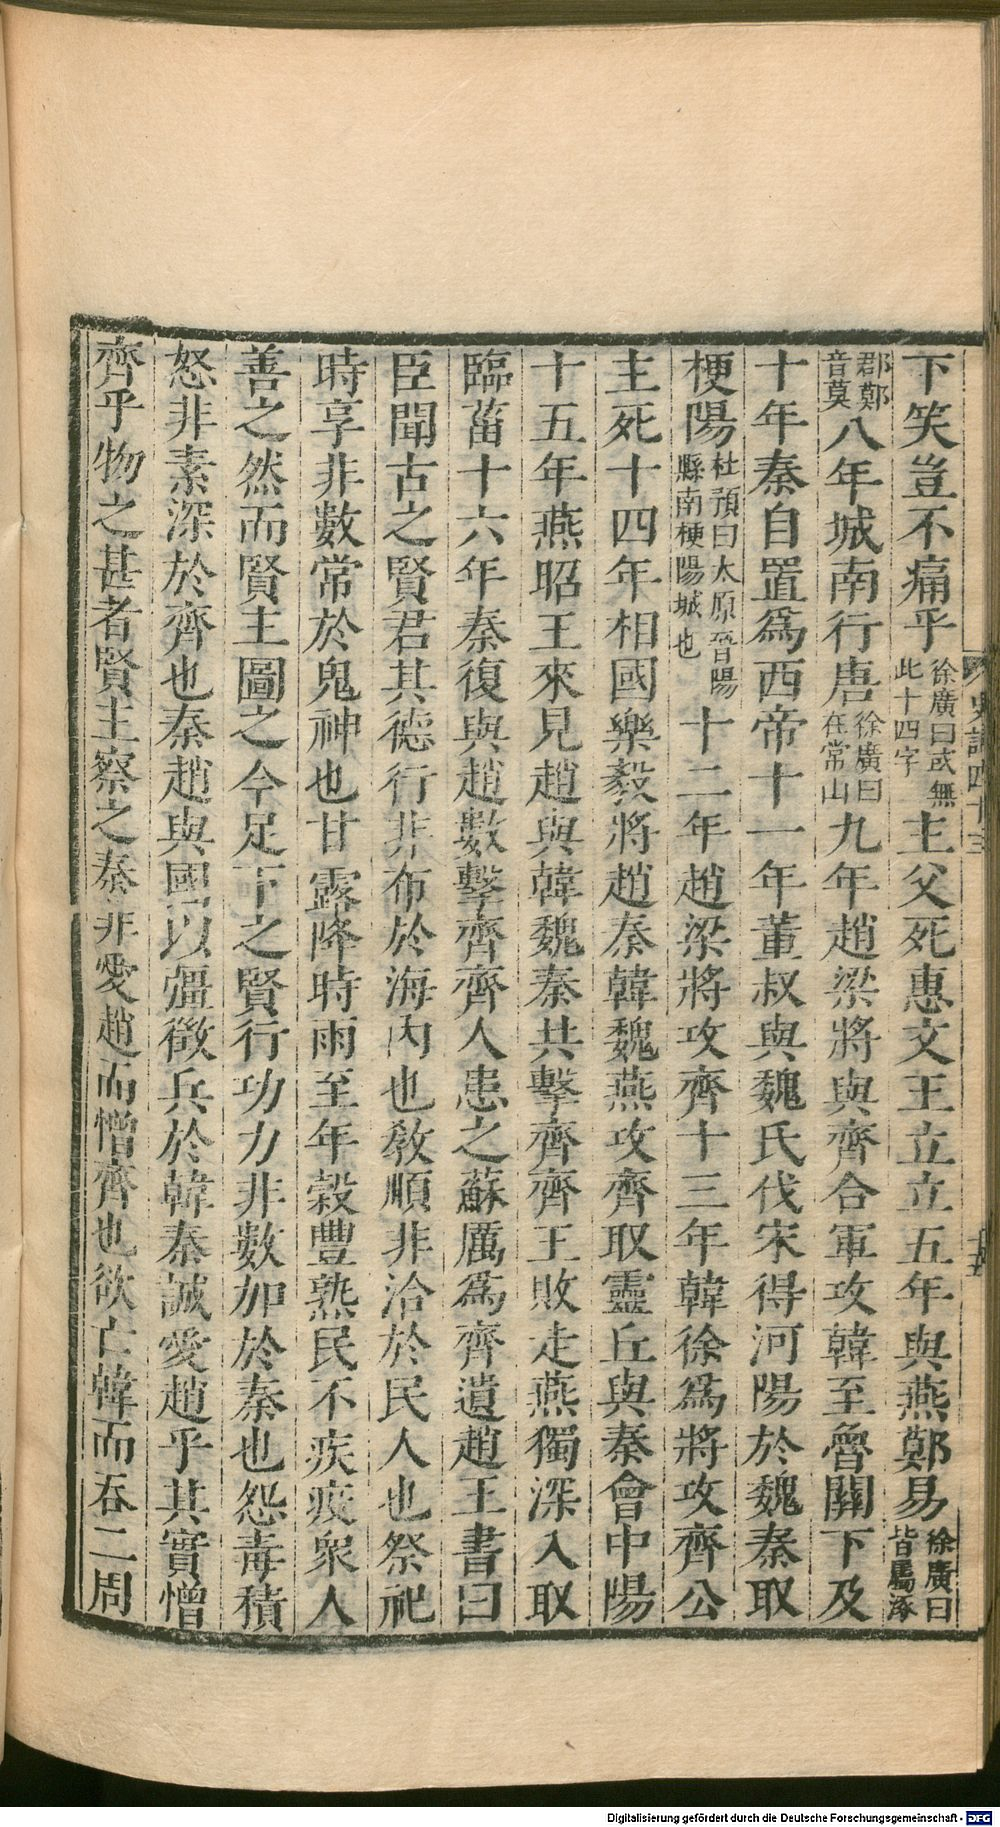 史記四十三
下笑豈不痛乎徐廣曰或無此十四字主父死惠文王立立五年與燕鄭易徐廣曰皆屬涿
郡鄭音莫八年城南行唐徐廣曰在常山九年趙梁將與齊合軍攻韓至魯關下及
十年秦自置爲西帝十一年董叔與魏氏伐宋得河陽於魏秦取
梗陽杜預曰太原晉陽縣南梗陽城也十二年趙梁將攻齊十三年韓徐爲將攻齊公
主死十四年相國樂毅將趙秦韓魏燕攻齊取靈丘與秦會中陽
十五年燕昭王來見趙與韓魏秦共擊齊齊王敗走燕獨深入取
臨菑十六年秦復與趙數擊齊齊人患之蘇厲爲齊遺趙王書曰
臣聞古之賢君其德行非布於海內也敎順非洽於民人也祭祀
時享非數常於鬼神也甘露降時雨至年穀豐熟民不疾疫衆人
善之然而賢主圖之今足下之賢行功力非數加於秦也怨毒積
怒非素深於齊也秦趙與國以彊徵兵於韓秦誠愛趙乎其實憎
齊乎物之甚者賢主察之秦非愛趙而憎齊也欲亡韓而吞二周
Digitalisierung gefördert durch die Deutsche Forschungsgemeinschaft - DFG